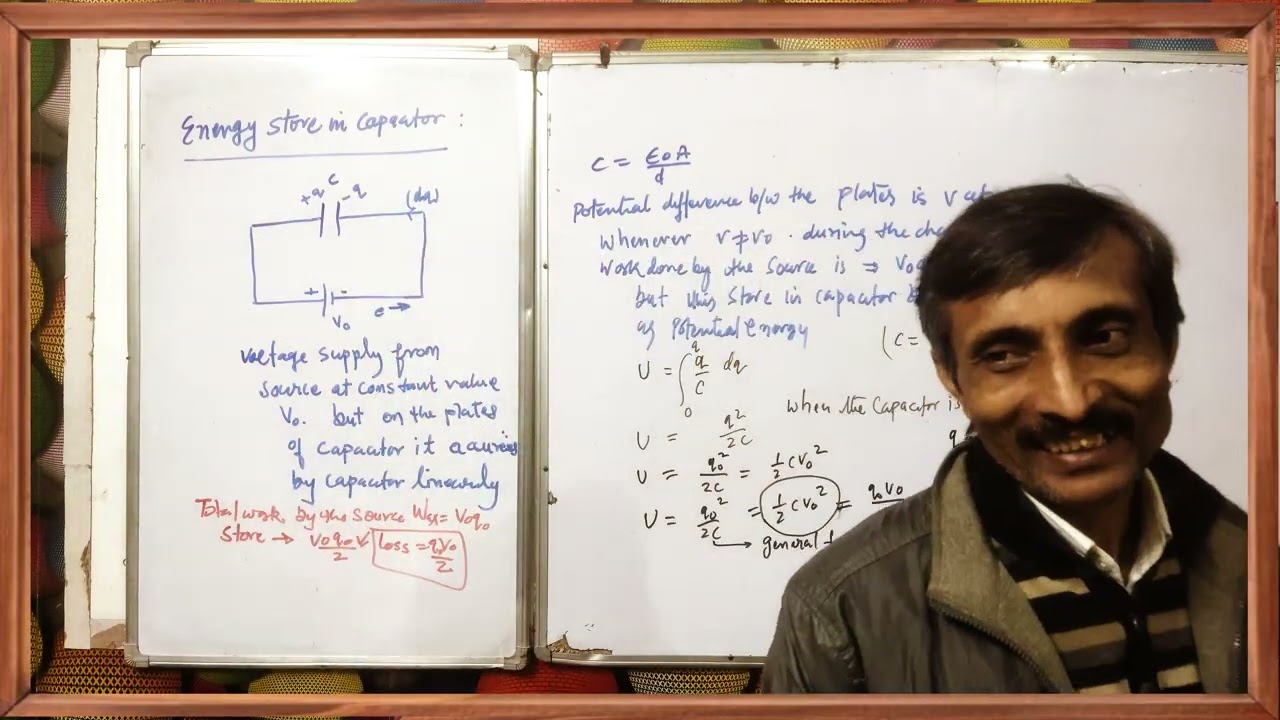 Energy store in capacitor :
C
+q -q (dq)
+ -
V₀ e →
voltage supply from
source at constant value
V₀. but on the plates
of capacitor it
by capacitor linearly
Total work by the source Wss = V₀q₀
Store → V₀q₀/2 Loss = q₀V₀/2
C = ε₀A/d
Potential difference b/w the plates is V
whenever V≠V₀ . during the
work done by the source is ⇒ V₀
but this store in capacitor
as Potential Energy
(C =
U = ∫₀^q q/C dq
when the Capacitor is
U = q²/2C
q
U = q₀²/2C = ½CV₀²
U = q₀²/2C = ½CV₀² = q₀V₀
→ general